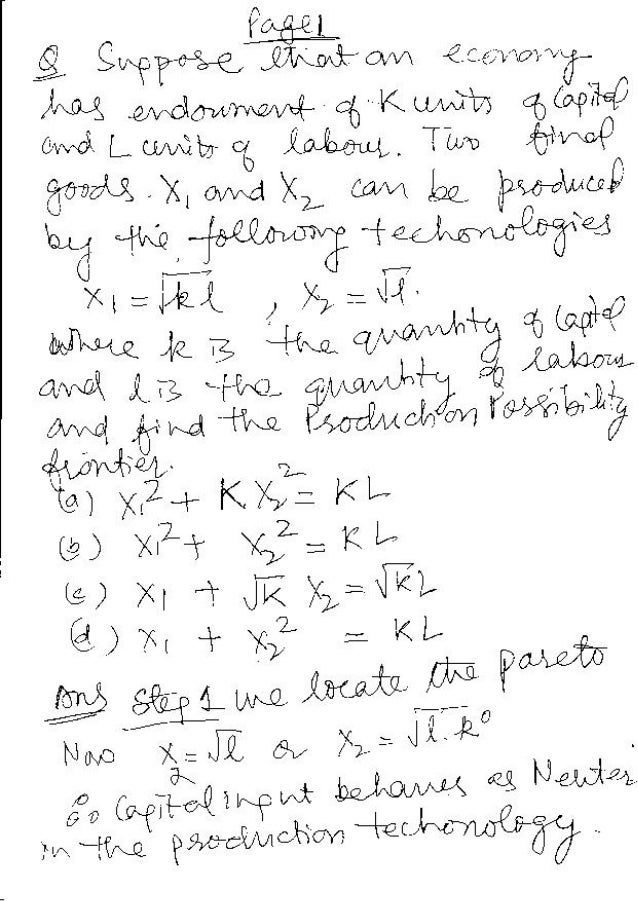 Page 1
Q Suppose that an economy
has endowment of K units of Capital
and L units of labour. Two final
goods. X₁ and X₂ can be produced
by the following techonologies
X₁ = √kl , X₂ = √l.
where k is the quantity of Capital
and l is the quantity of labour
and find the Production Possibility
frontier.
(a) X₁² + K X₂² = KL
(b) X₁² + X₂² = KL
(c) X₁ + √K X₂ = √KL
(d) X₁ + X₂² = KL
Ans Step 1 we locate the pareto
Now X₂ = √l or X₂ = √l.k⁰
So Capital input behaves as Neuter
in the production techonology.